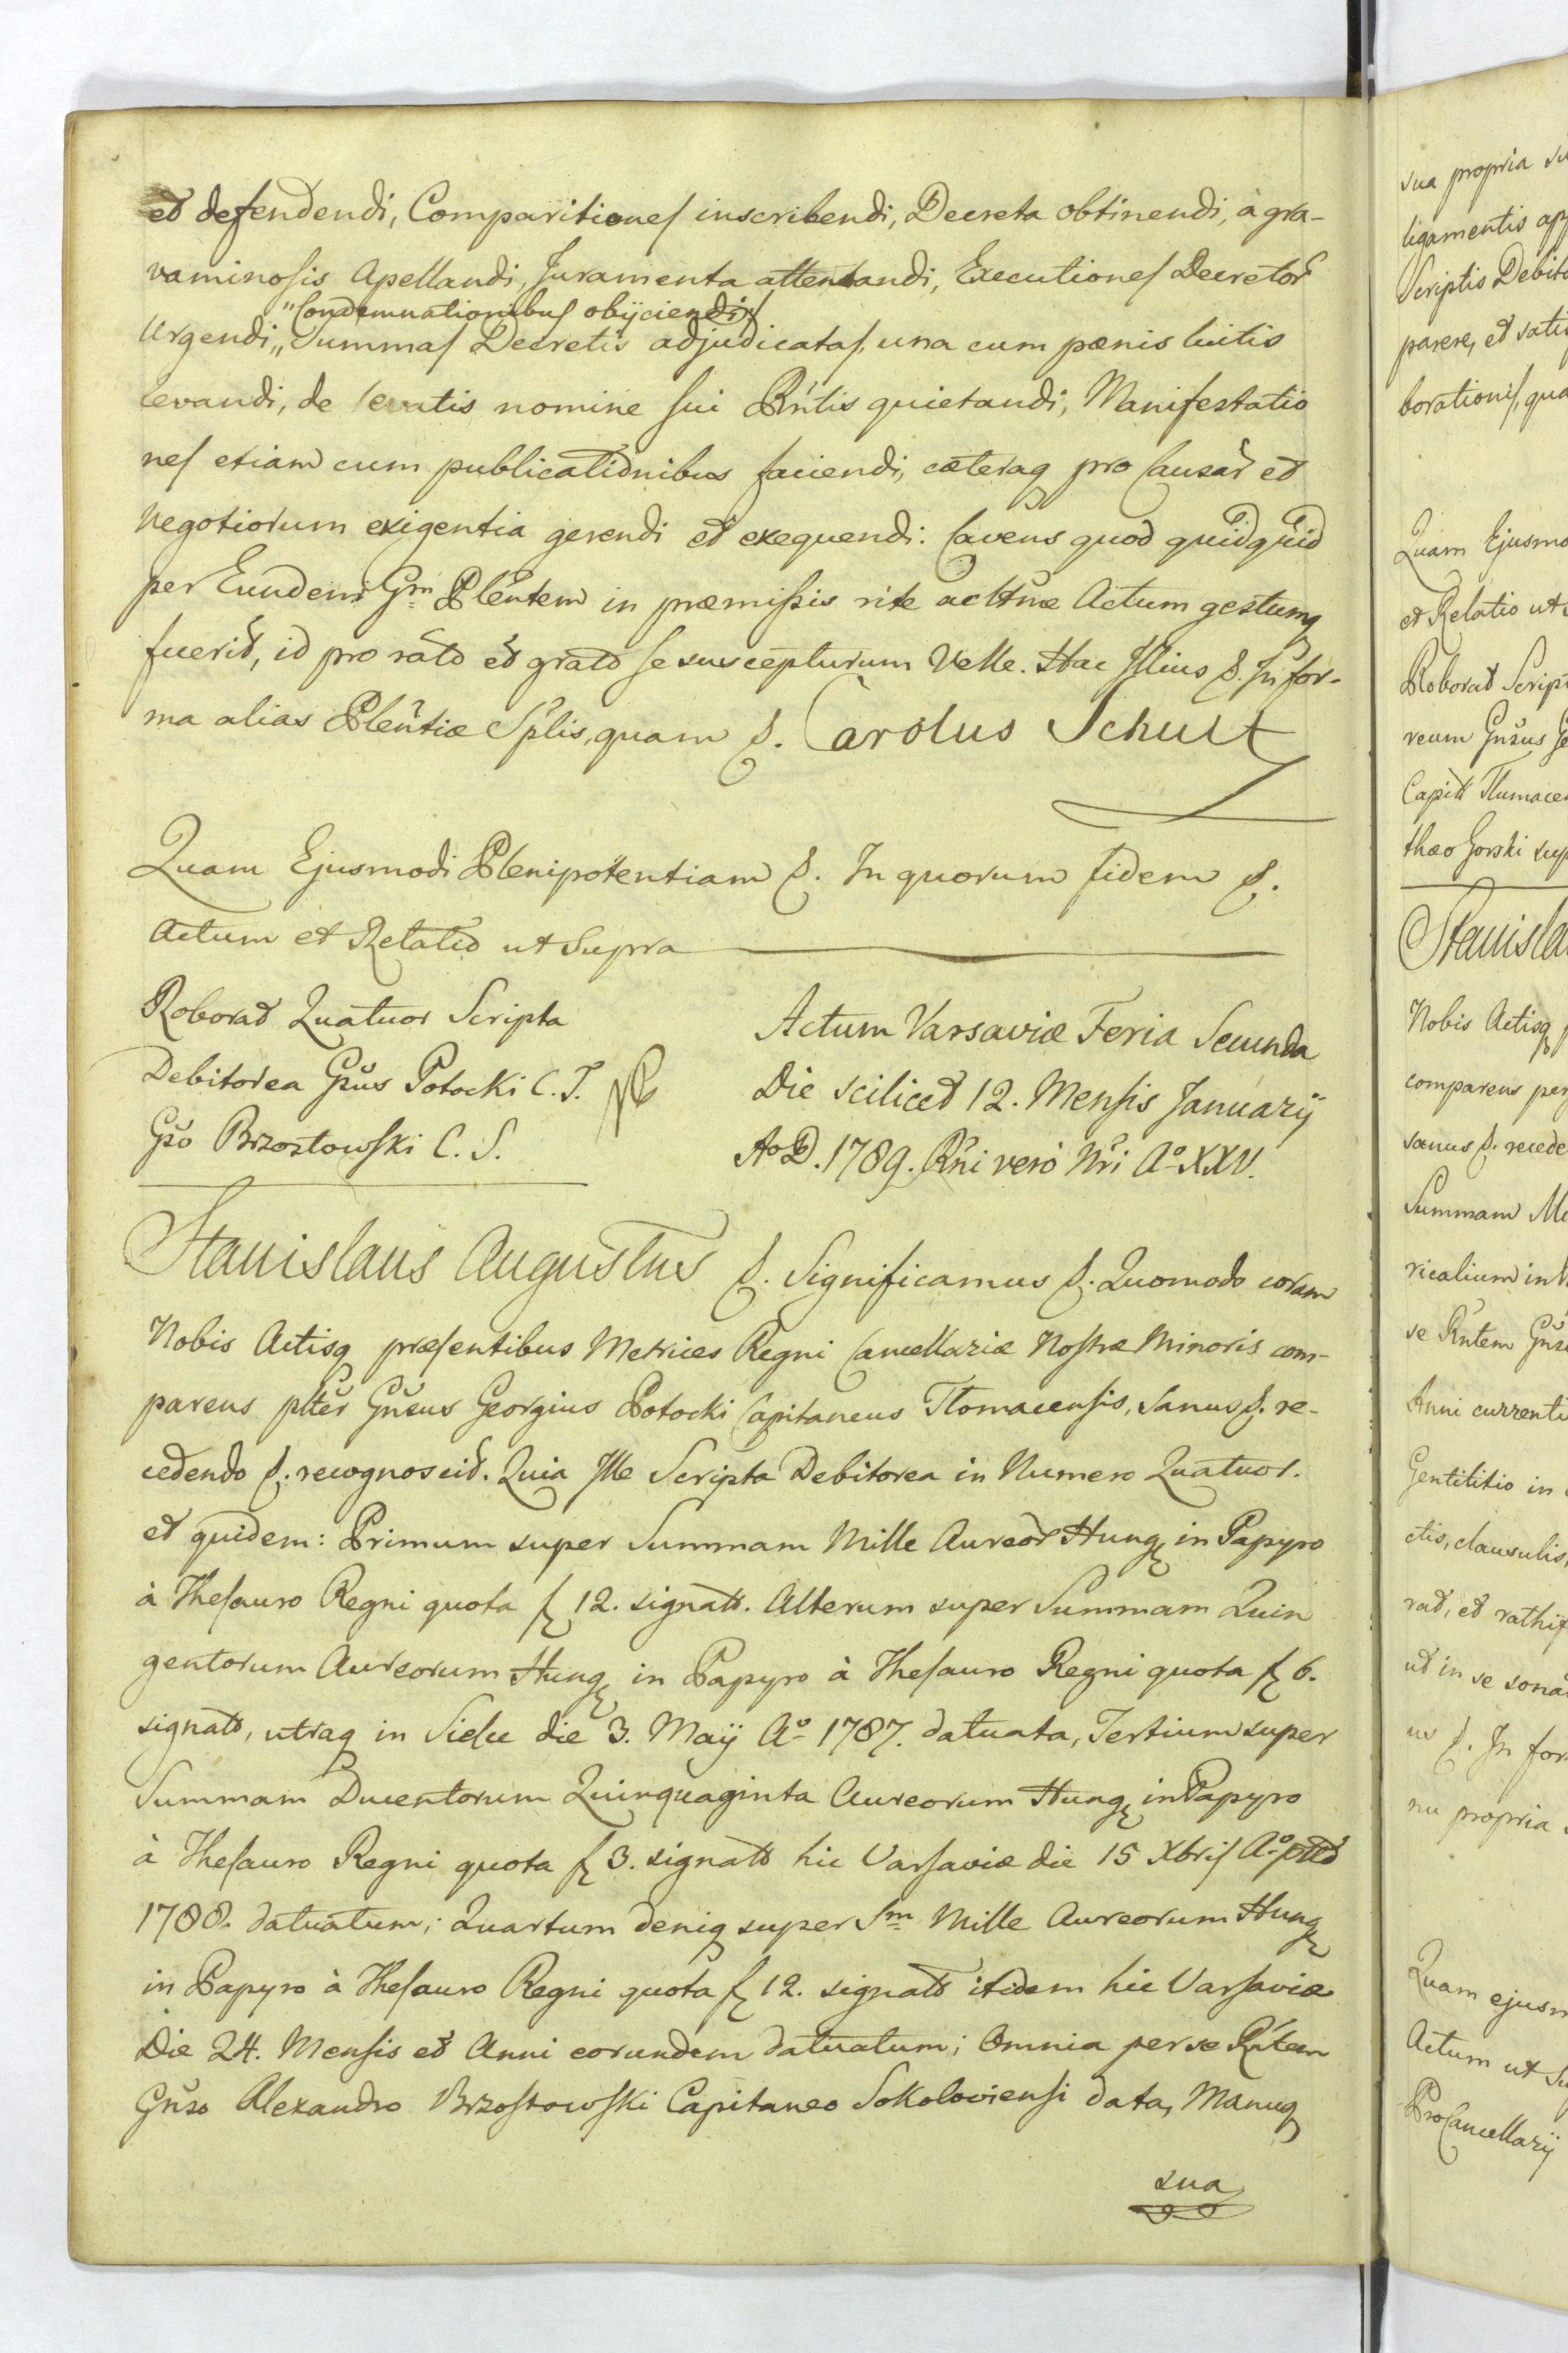 et defendendi, Comparitiones inscribendi, Decreta obtinendi, à gra-
vaminosis Apellandi, Juramenta attentandi, Executiones Decretor
"Condemnationibus obijciendi,
Urgendi,, Summas Decretis adjudicatas, una cum pœnis luitis
levandi, de levatis nomine sui Pntis quietandi, Manifestatio
nes etiam cum publicationibus faciendi, cæteraq pro Causar et
Negotiorum exigentia gerendi et exequendi: Cavens quod quidquid
per Eundem Gm Plentem in præmissis rite Actum gestumq
fuerit, id pro rato et grato se suscepturum Velle. Hac Illius &. In for-
ma alias Plentiæ Splis, quam &. Carolus Schult
Quam Ejusmodi Plenipotentiam &. In quorum fidem &.
Actum et Relatio ut Supra
Roborat Quatuor Scripta
Debitorea Gsus Potocki C. T.
Gso Brzostowski C. S.
Actum Varsaviæ Feria Secunda
Die scilicet 12. Mensis Januarij
Ao D. 1789. Rni vero Nri Ao XXV.
Stanislaus Augustus &. Significamus &. Quomodo coram
Nobis Actisq præsentibus Metrices Regni Cancellariæ Nostræ Minoris com-
parens plter Gnsus Georgius Potocki Capitaneus Tlomacensis, Sanus &. re-
cedendo &. recognoscit. Quia Ille Scripta Debitorea in Numero Quatuor.
et quidem: Primum super Summam Mille Aureor Hung in Papyro
à Thesauro Regni quota f 12. signato. Alterum super Summam Quin
gentorum Aureorum Hung in Papyro à Thesauro Regni quota f 6.
signato, utraq in Sielce die 3. Maij Ao 1787. datuata, Tertium super
Summam Ducentorum Quinquaginta Aureorum Hung in Papyro
à Thesauro Regni quota f 3. signato hic Varsaviæ die 15 Xbris Ao
1788. datuatum; Quartum deniq super Sm Mille Aureorum Hung
in Papyro à Thesauro Regni quota f 12. signato itidem hic Varsaviæ
Die 24. Mensis et Anni eorundem datuatum; Omnia per se Rntem
Gnso Alexandro Brzostowski Capitaneo Sokoloviensi data, Manuq
sua
sua propria
ligamentis
Scriptis
parere, et
borationis,
Quam
et Relatio ut
Roborat
reum Gnsus
Capit
thæo Gorski
Nobis Actisq
comparens
sanus &.
Summam
ricalium in
se Rntem
Anni
Gentilitio in
ctis, clausulis,
rat, et
ut in se
us &. In
nu propria
Quam
Actum ut
ProCancellarij